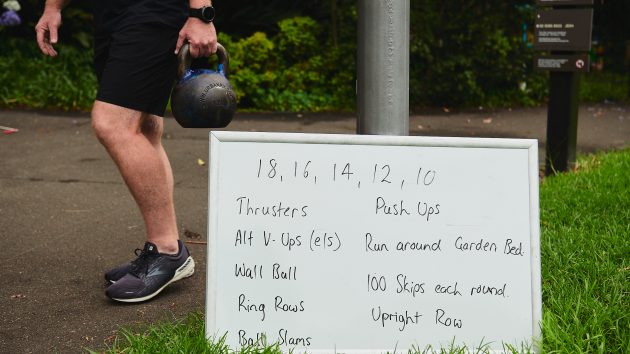 18, 16, 14, 12, 10
Thrusters
Alt V-Ups (e/s)
Wall Ball
Ring Rows
Ball Slams
Push Ups
Run around Garden Bed.
100 Skips each round.
Upright Row